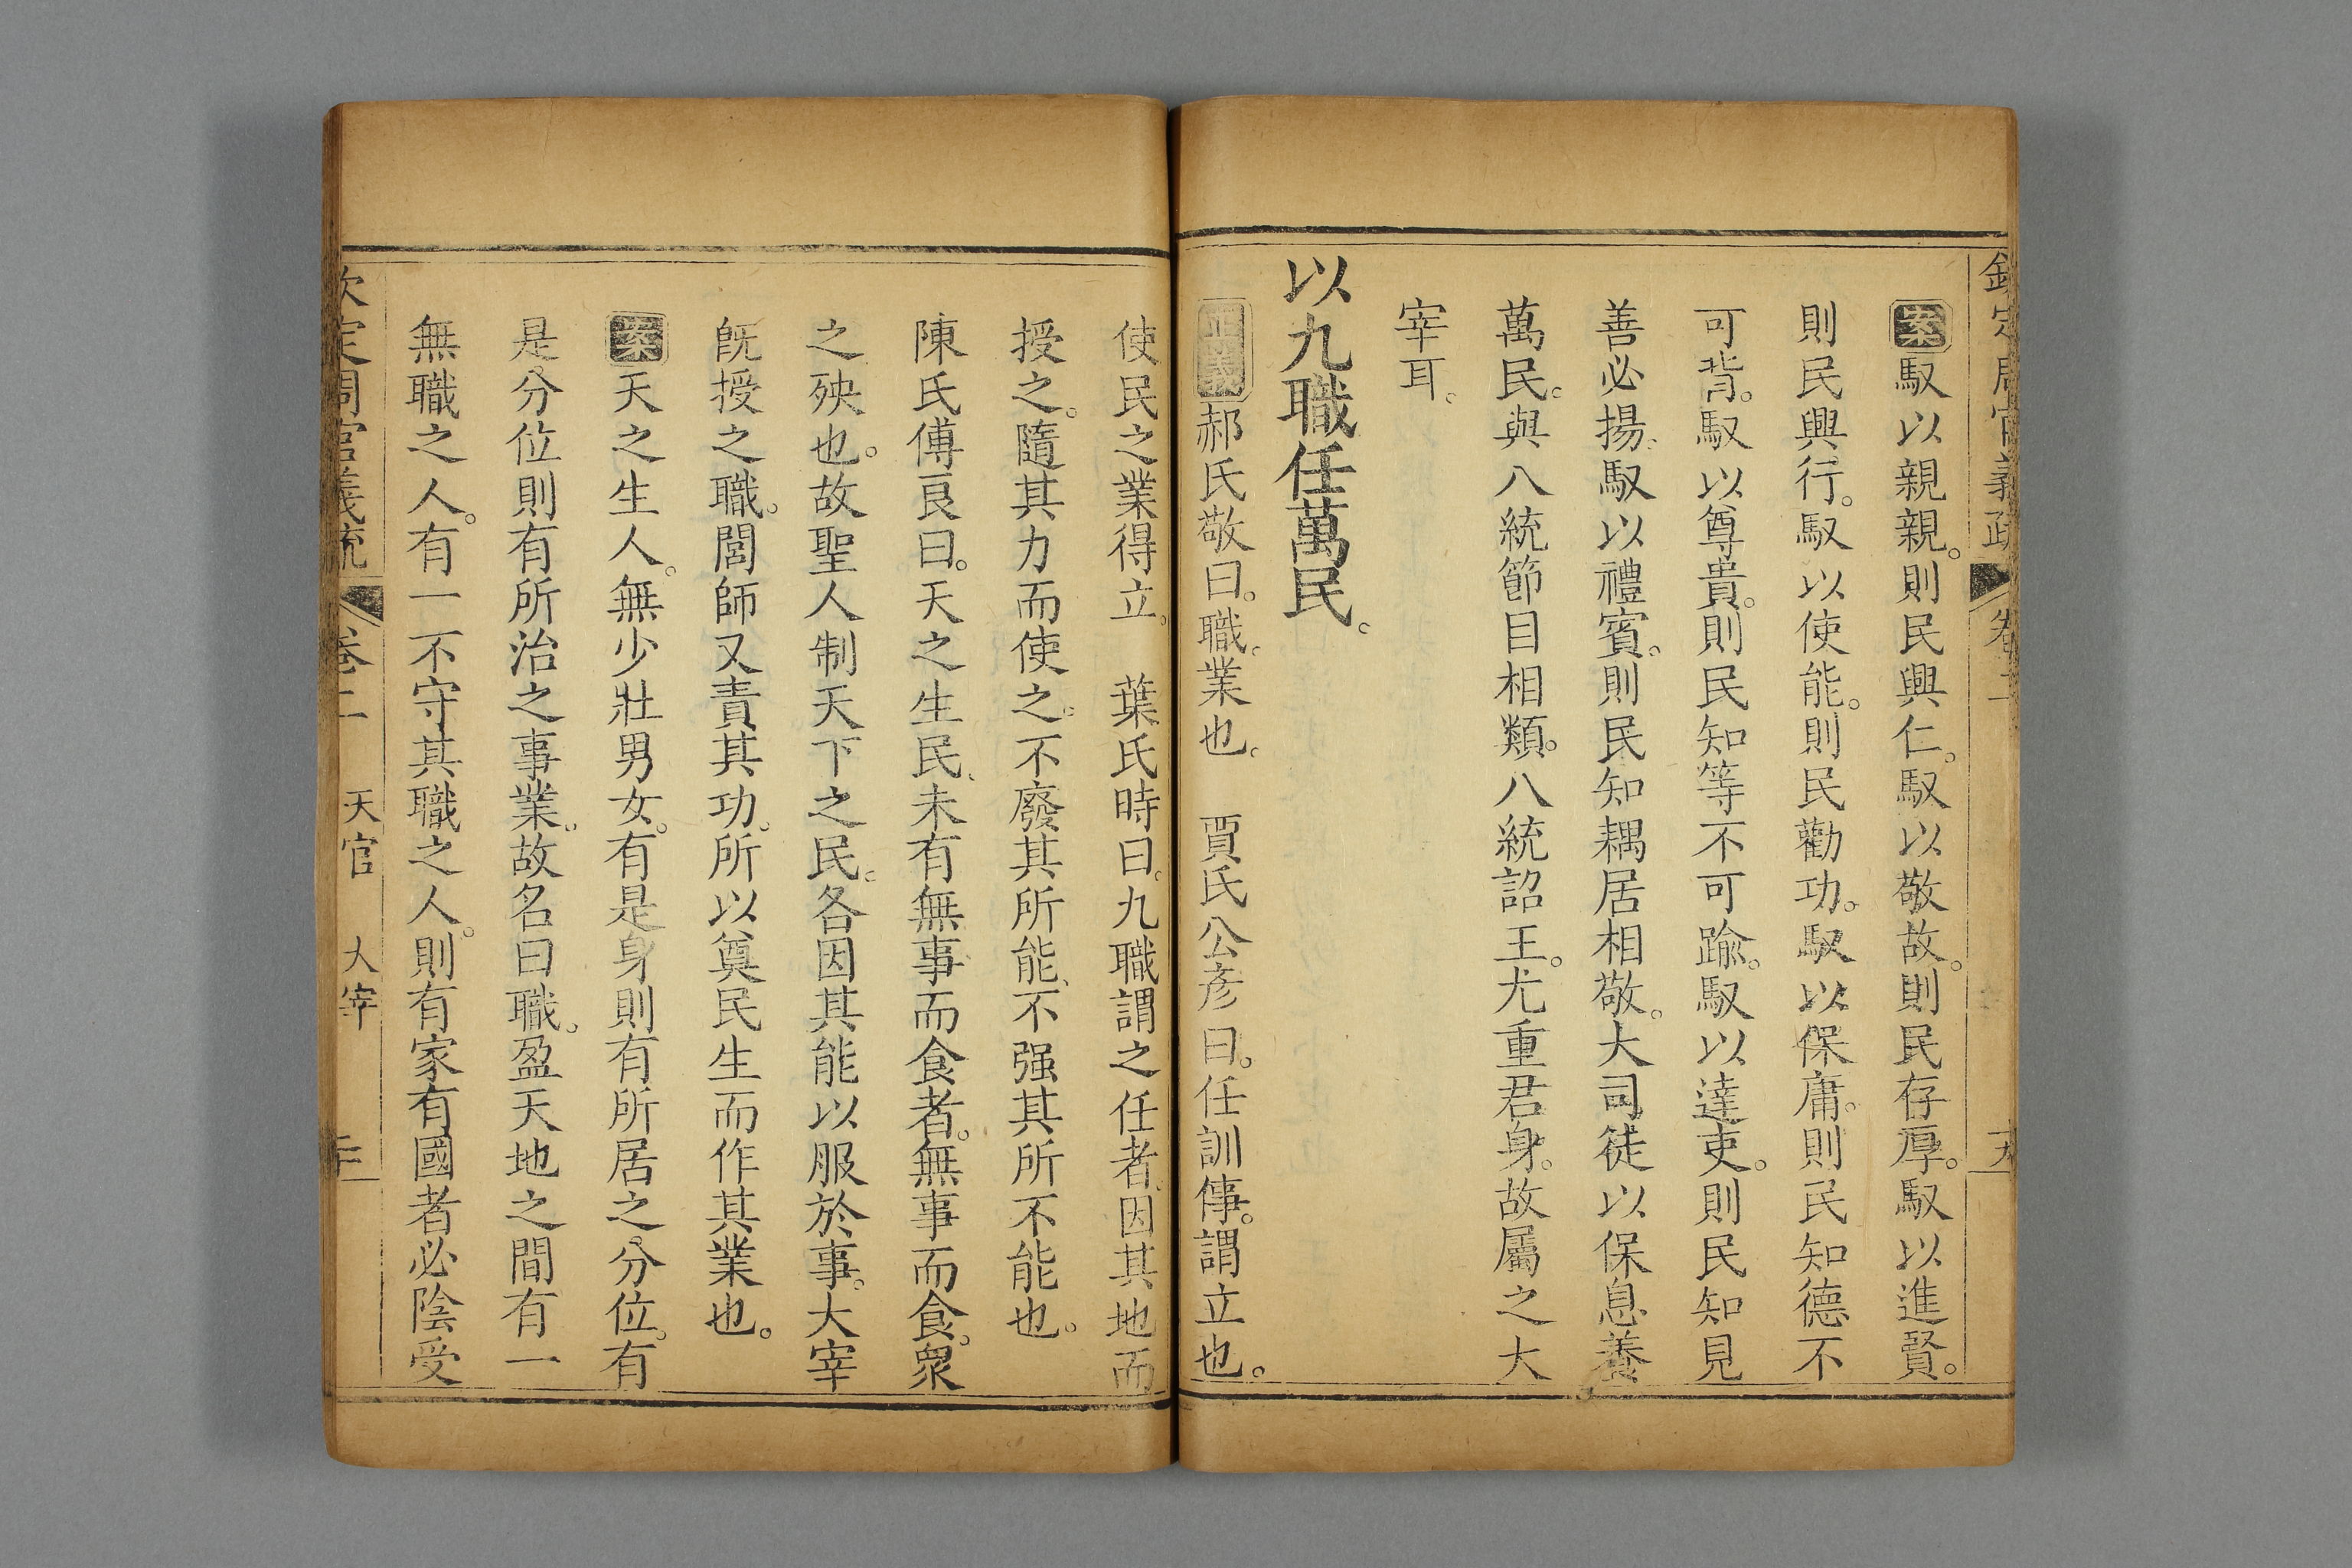 欽定周官義疏 卷二
案馭以親親。則民興仁。馭以敬故。則民存厚。馭以進賢。
則民興行。馭以使能。則民勸功。馭以保庸。則民知德不
可背。馭以尊貴。則民知等不可踰。馭以達吏。則民知見
善必揚。馭以禮賓。則民知耦居相敬。大司徒以保息養
萬民。與八統節目相類。八統詔王。尤重君身。故屬之大
宰耳。
以九職任萬民。
正義郝氏敬曰。職。業也。 賈氏公彥曰。任訓傳。謂立也。
使民之業得立。 葉氏時曰。九職謂之任者。因其地而
授之。隨其力而使之。不廢其所能、不强其所不能也。
陳氏傅良曰。天之生民、未有無事而食者。無事而食。衆
之殃也。故聖人制天下之民。各因其能以服於事。大宰
旣授之職。閭師又責其功。所以奠民生而作其業也。
案天之生人。無少壯男女。有是身則有所居之分位。有
是分位則有所治之事業。故名曰職。盈天地之間有一
無職之人。有一不守其職之人。則有家有國者必陰受
欽定周官義疏 卷二 天官 大宰